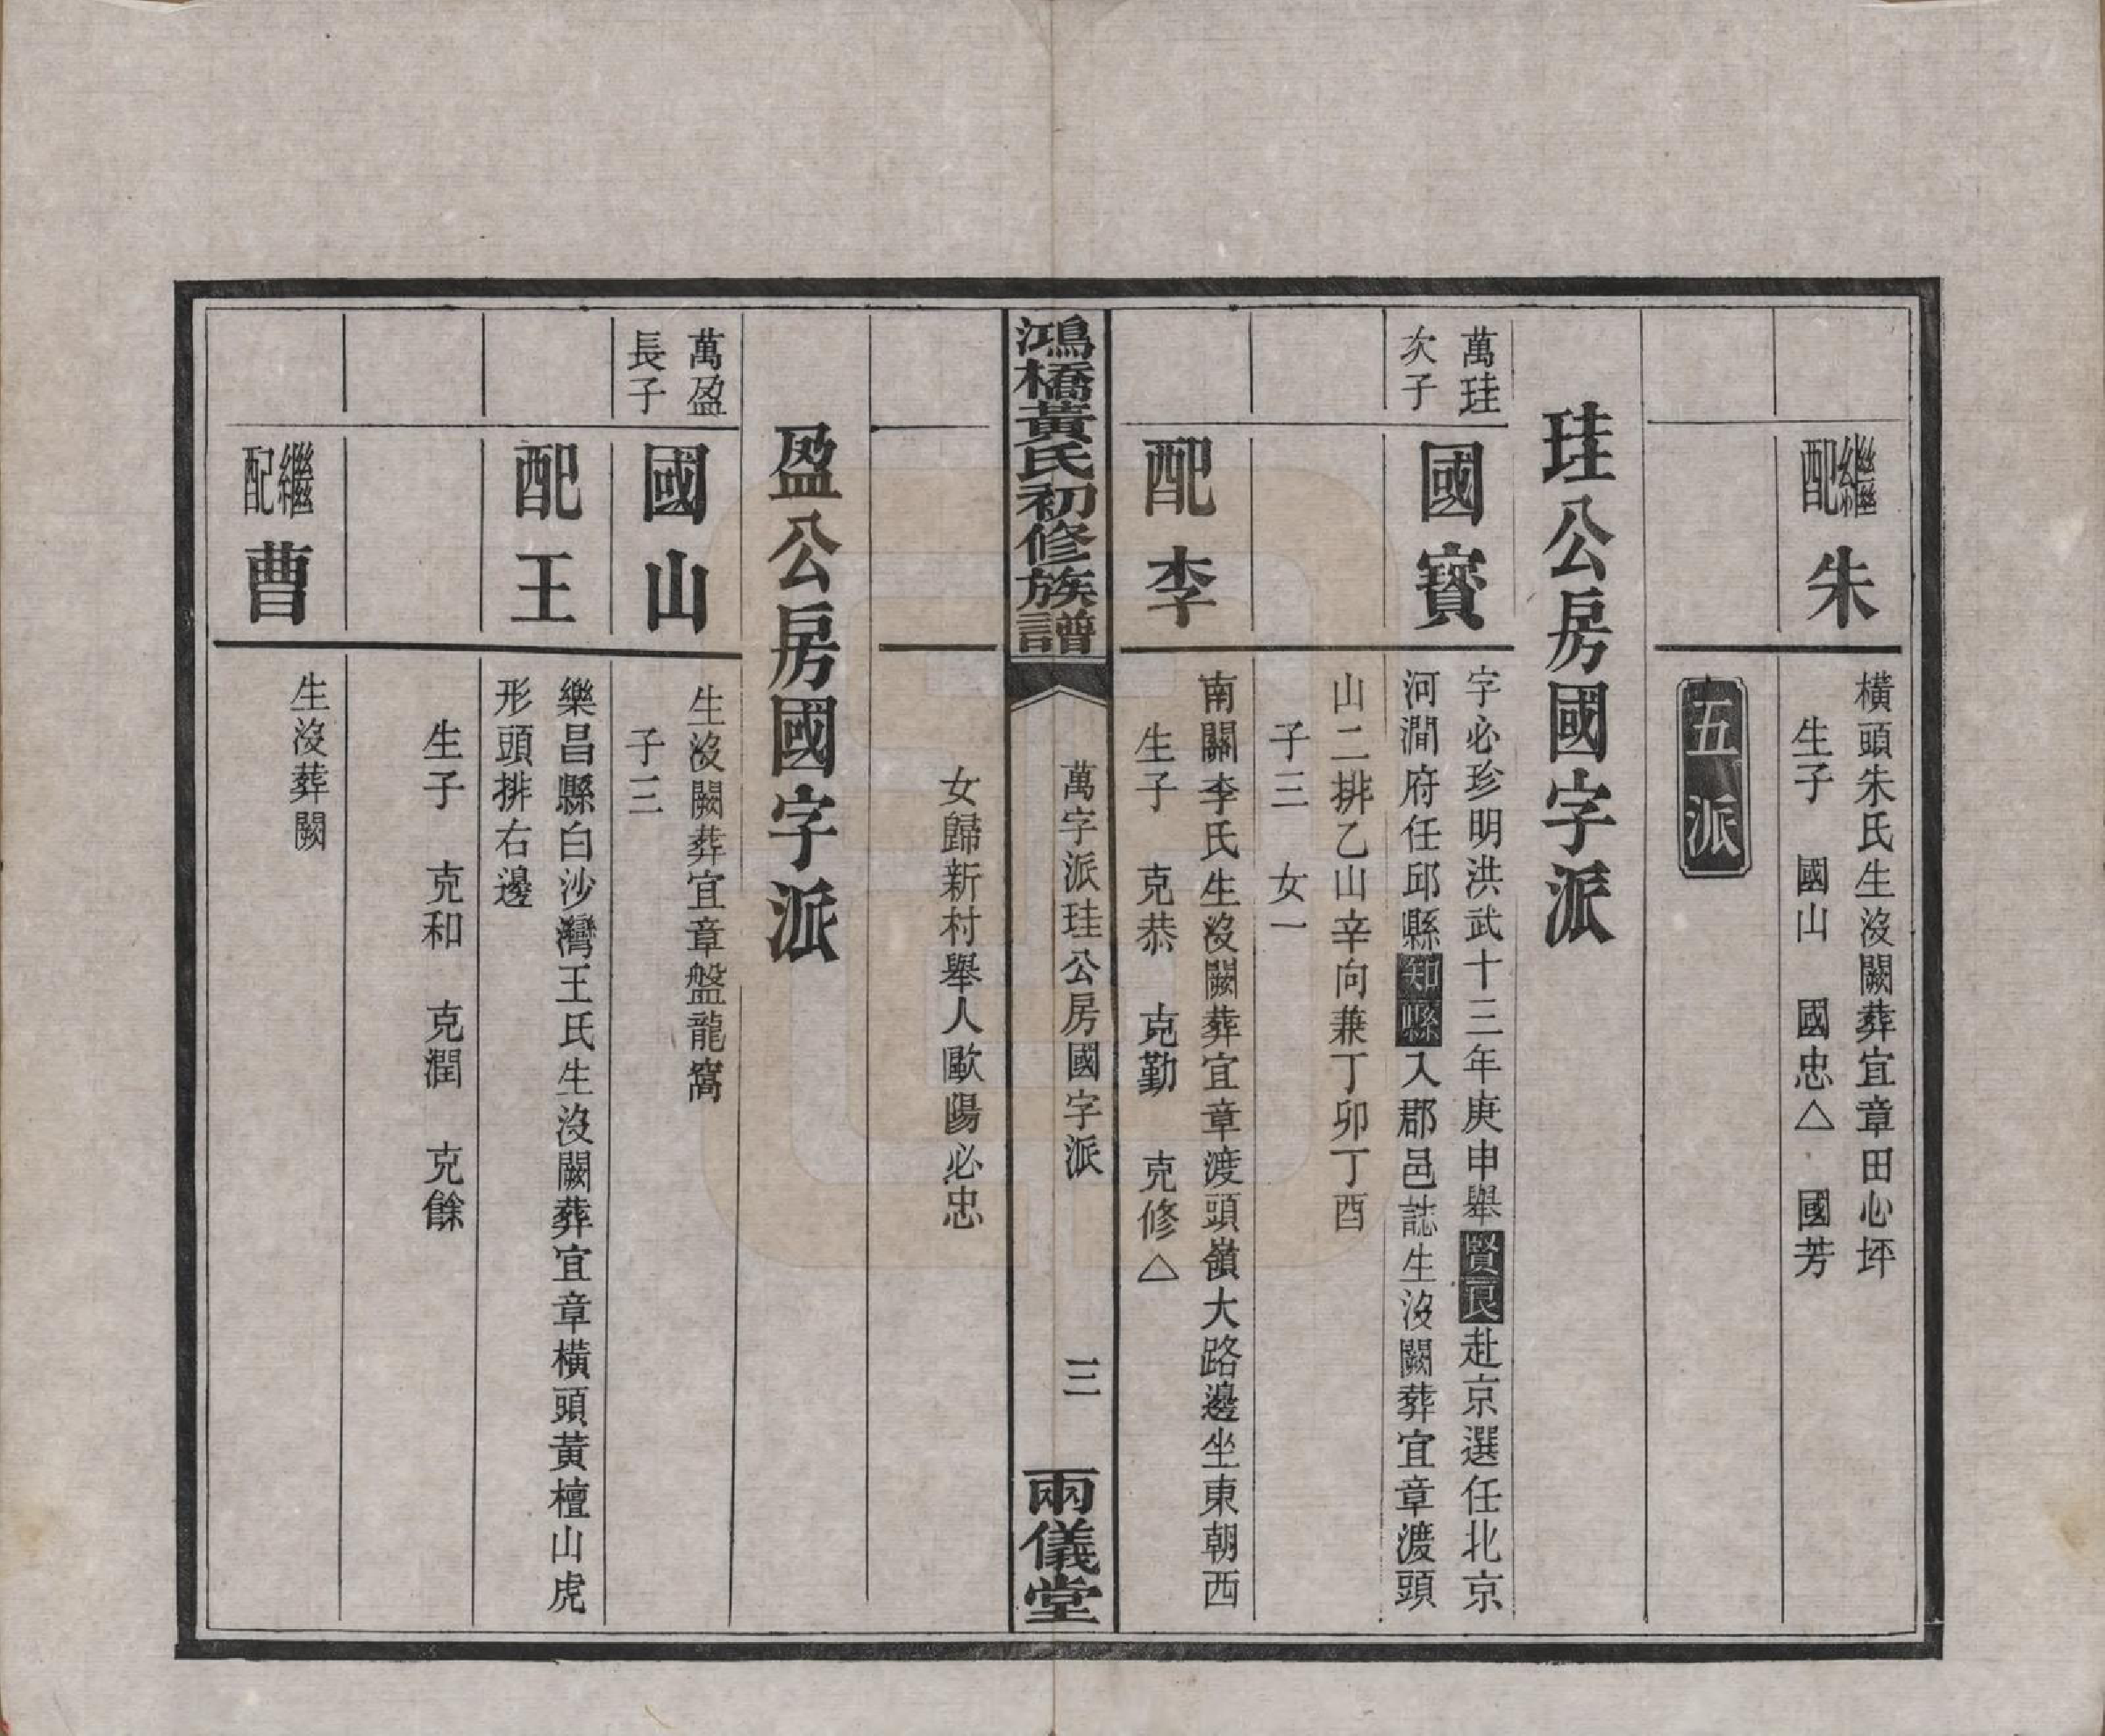 繼配朱
橫頭朱氏生沒闕葬宜章田心坪
生子　國山　國忠△　國芳
五派
珪公房國字派
萬珪
次子
國寶
字必珍明洪武十三年庚申舉賢良赴京選任北京
河澗府任邱縣知縣入郡邑誌生沒闕葬宜章渡頭
山二排乙山辛向兼丁卯丁酉
子三　女一
配李
南關李氏生沒闕葬宜章渡頭嶺大路邊坐東朝西
生子　克恭　克勤　克修△
鴻橋黃氏初修族譜
萬字派珪公房國字派
三
兩儀堂
女歸新村舉人歐陽必忠
盈公房國字派
萬盈
長子
國山
生沒闕葬宜章盤龍窩
子三
配王
樂昌縣白沙灣王氏生沒闕葬宜章橫頭黃檀山虎
形頭排右邊
生子　克和　克潤　克餘
繼配曹
生沒葬闕